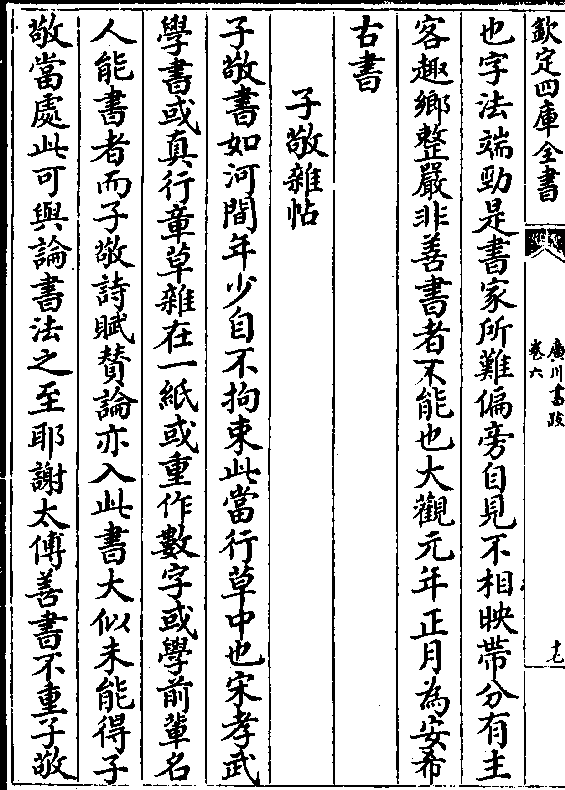 欽定四庫全書
廣川書跋
卷六
十七
也字法端勁是書家所難偏旁自見不相映帶分有主
客趣鄉整嚴非善書者不能也大觀元年正月為安希
古書
子敬雜帖
子敬書如河間年少自不拘束此當行草中也宋孝武
學書或真行章草雜在一紙或重作數字或學前輩名
人能書者而子敬詩賦贊論亦入此書大似未能得子
敬當處此可與論書法之至耶謝太傅善書不重子敬